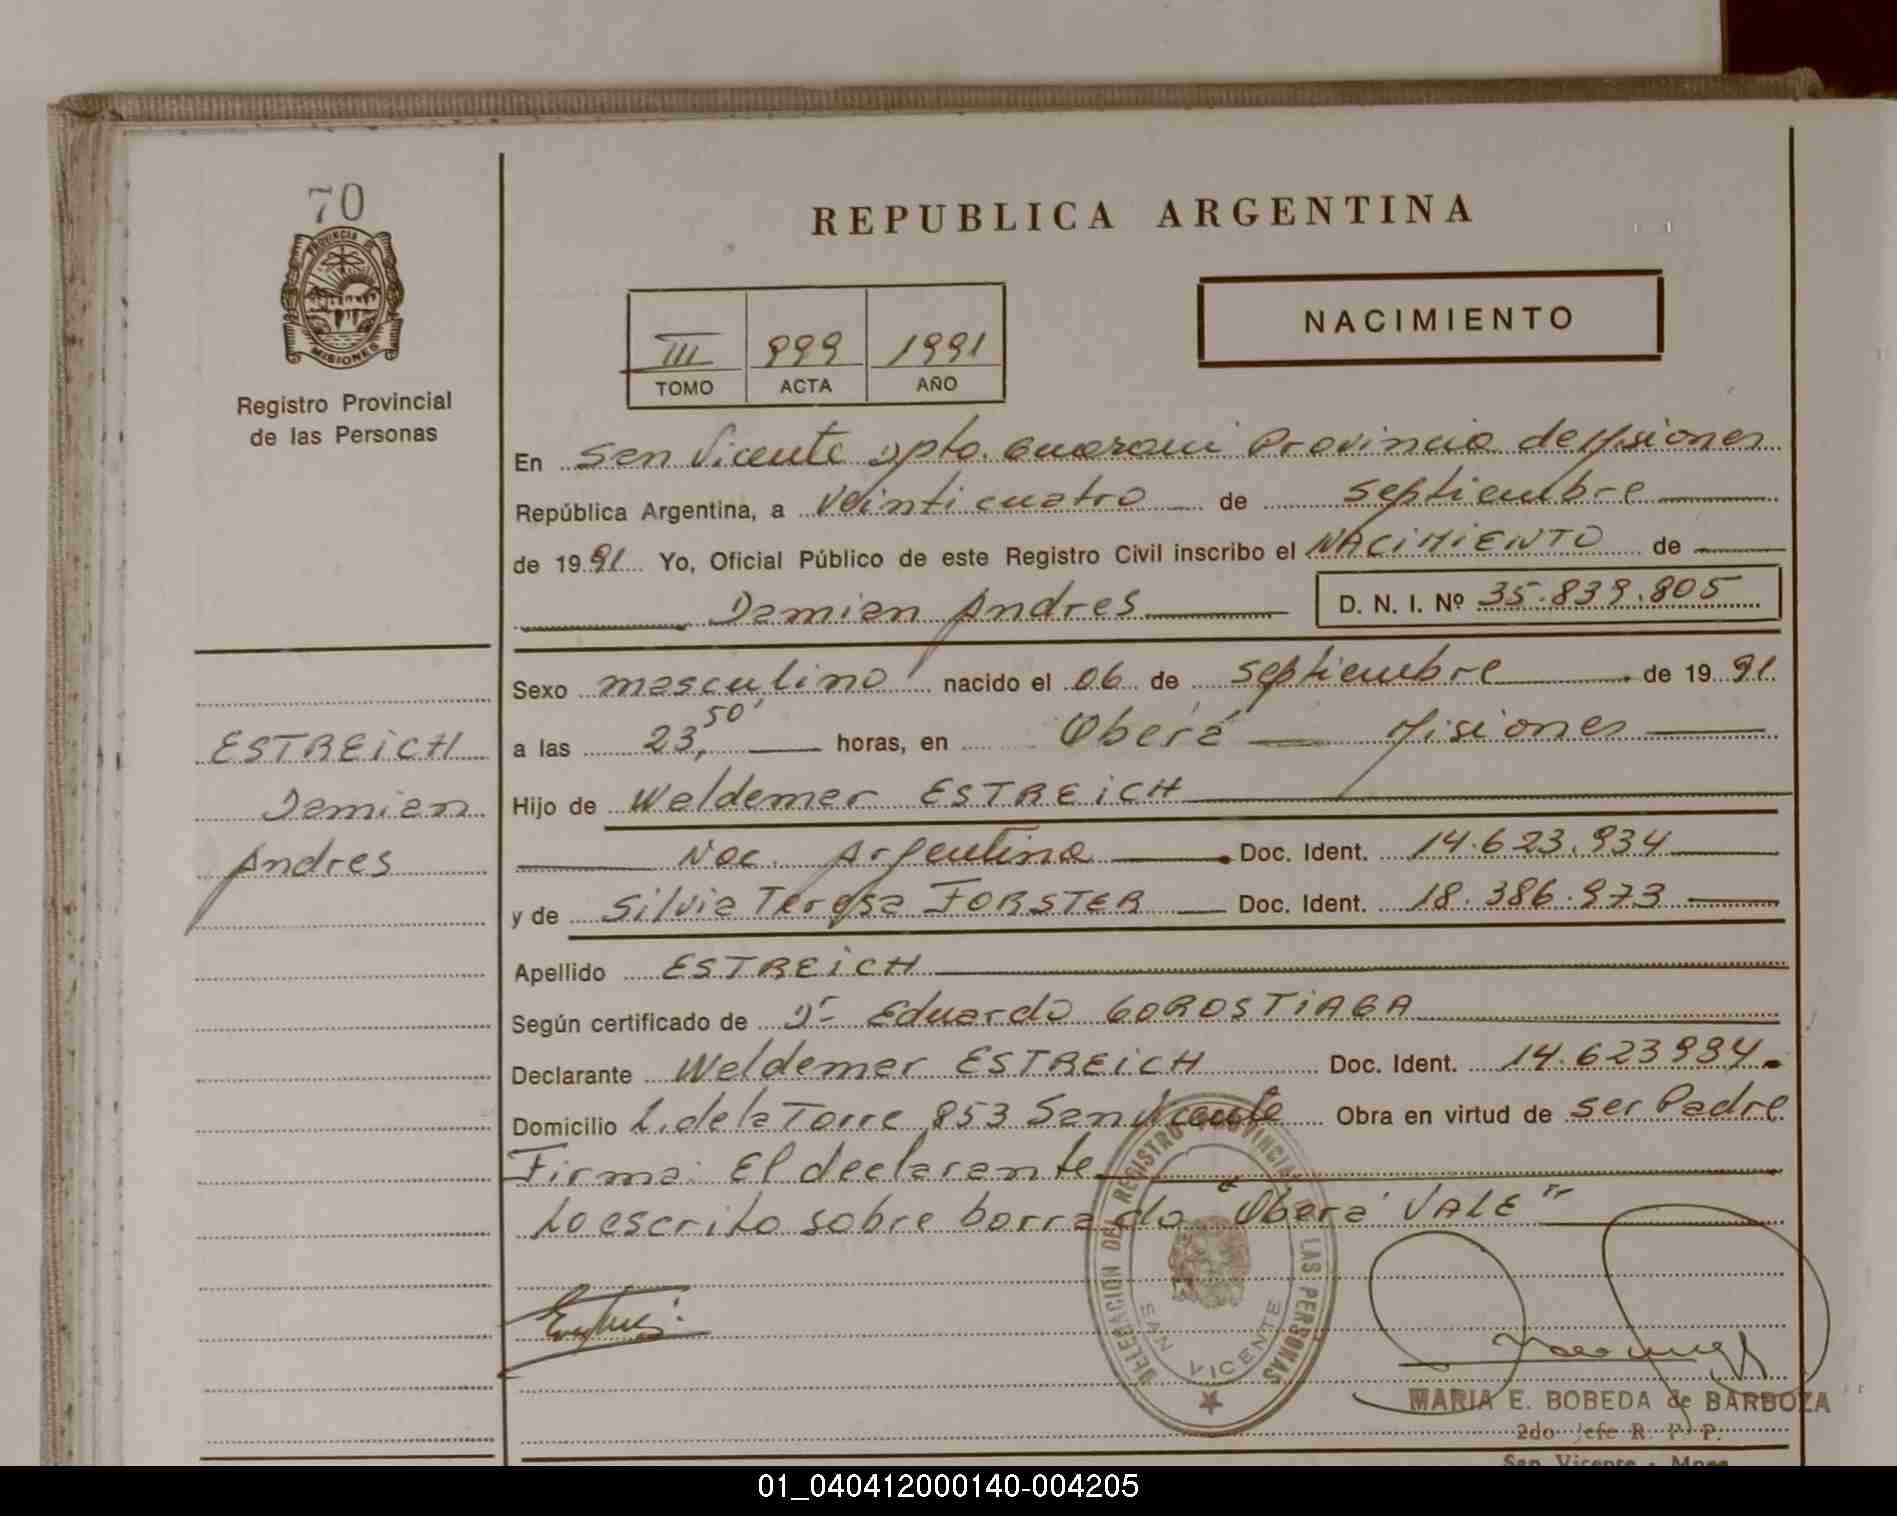 70
PROVINCIA DE
MISIONES
Registro Provincial
de las Personas
REPUBLICA ARGENTINA
III 999 1991
TOMO ACTA AÑO
NACIMIENTO
En San Vicente Dpto. Guarani Provincia de Misiones
República Argentina, a Veinticuatro de septiembre
de 1991 Yo, Oficial Público de este Registro Civil inscribo el NACIMIENTO de
Damian Andres D. N. I. Nº 35.839.805
Sexo masculino nacido el 06 de septiembre de 1991.
a las 23,50' horas, en Oberá Misiones
ESTREICH
Damian
Andres
Hijo de Waldemar ESTREICH
Nac. Argentina Doc. Ident. 14.623.934
y de Silvia Teresa FORSTER Doc. Ident. 18.386.973
Apellido ESTREICH
Según certificado de Dr Eduardo GOROSTIAGA
Declarante Waldemar ESTREICH Doc. Ident. 14.623934.
Domicilio L. de la Torre 853 San Vicente Obra en virtud de ser Padre
Firma: El declarante
Lo escrito sobre borrado "Oberá VALE"
DELEGACION DEL REGISTRO PROVINCIAL DE LAS PERSONAS
SAN VICENTE
MARIA E. BOBEDA de BARBOZA
2do Jefe R. P. P.
San Vicente - Mnes
01_040412000140-004205